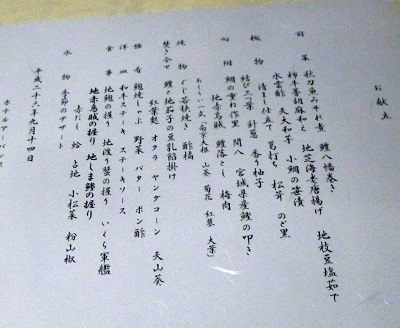 お献立
前菜 秋刀魚み寄れ煮 鰻八幡巻き 地枝豆塩茹で
柿牛蒡胡麻和え 地芝海老唐揚げ
水雲酢 天又和子 小鯛の笹漬
椀物 清まし仕立て 葛打ち 松茸 のど黒
結び三つ葉 針葱 香り柚子
向附 鯛の重ね作里 間八 宮城県産鰹の叩き
地赤烏賊 鱧落とし 梅肉
あしらい一式「南京大根 山葵 菊花 紅蓼 大葉」
焼物 ぐじ若狭焼き 酢橘
焚き合せ 鰻と地茄子の豆乳餡掛け
紅葉麩 オクラ ヤングコーン 天山葵
強肴 鰻焼しゃぶ 野菜 バター ポン酢
洋皿 和牛ステーキ ステーキソース
食事 地鯛の握り 地渡り蟹の握り いくら軍艦
地赤烏賊の握り 地しま鯵の握り
赤だし 蛤 占地 小松菜 粉山椒
水物 季節のデザート
平成二十六年九月十四日
ホテルアーバンス